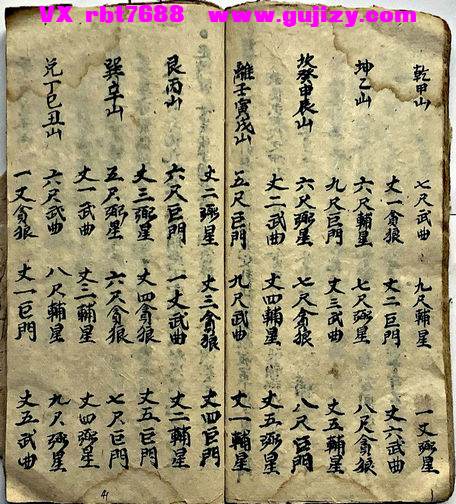 VX rbt7688 www.gujizy.com
乾甲山 七尺武曲 九尺輔星 一丈弼星
丈一貪狼 丈二巨門 丈六武曲
坤乙山 六尺輔星 七尺弼星 八尺貪狼
九尺巨門 丈三武曲 丈五輔星
坎癸申辰山 六尺弼星 七尺貪狼 八尺巨門
丈二武曲 丈四輔星 丈五弼星
離壬寅戌山 五尺巨門 九尺武曲 丈一輔星
丈二弼星 丈三貪狼 丈四巨門
艮丙山 六尺巨門 一丈武曲 丈二輔星
丈三弼星 丈四貪狼 丈五巨門
巽辛山 五尺弼星 六尺貪狼 七尺巨門
丈一武曲 丈三輔星 丈四弼星
兌丁巳丑山 六尺武曲 八尺輔星 九尺弼星
一丈貪狼 丈一巨門 丈五武曲
41